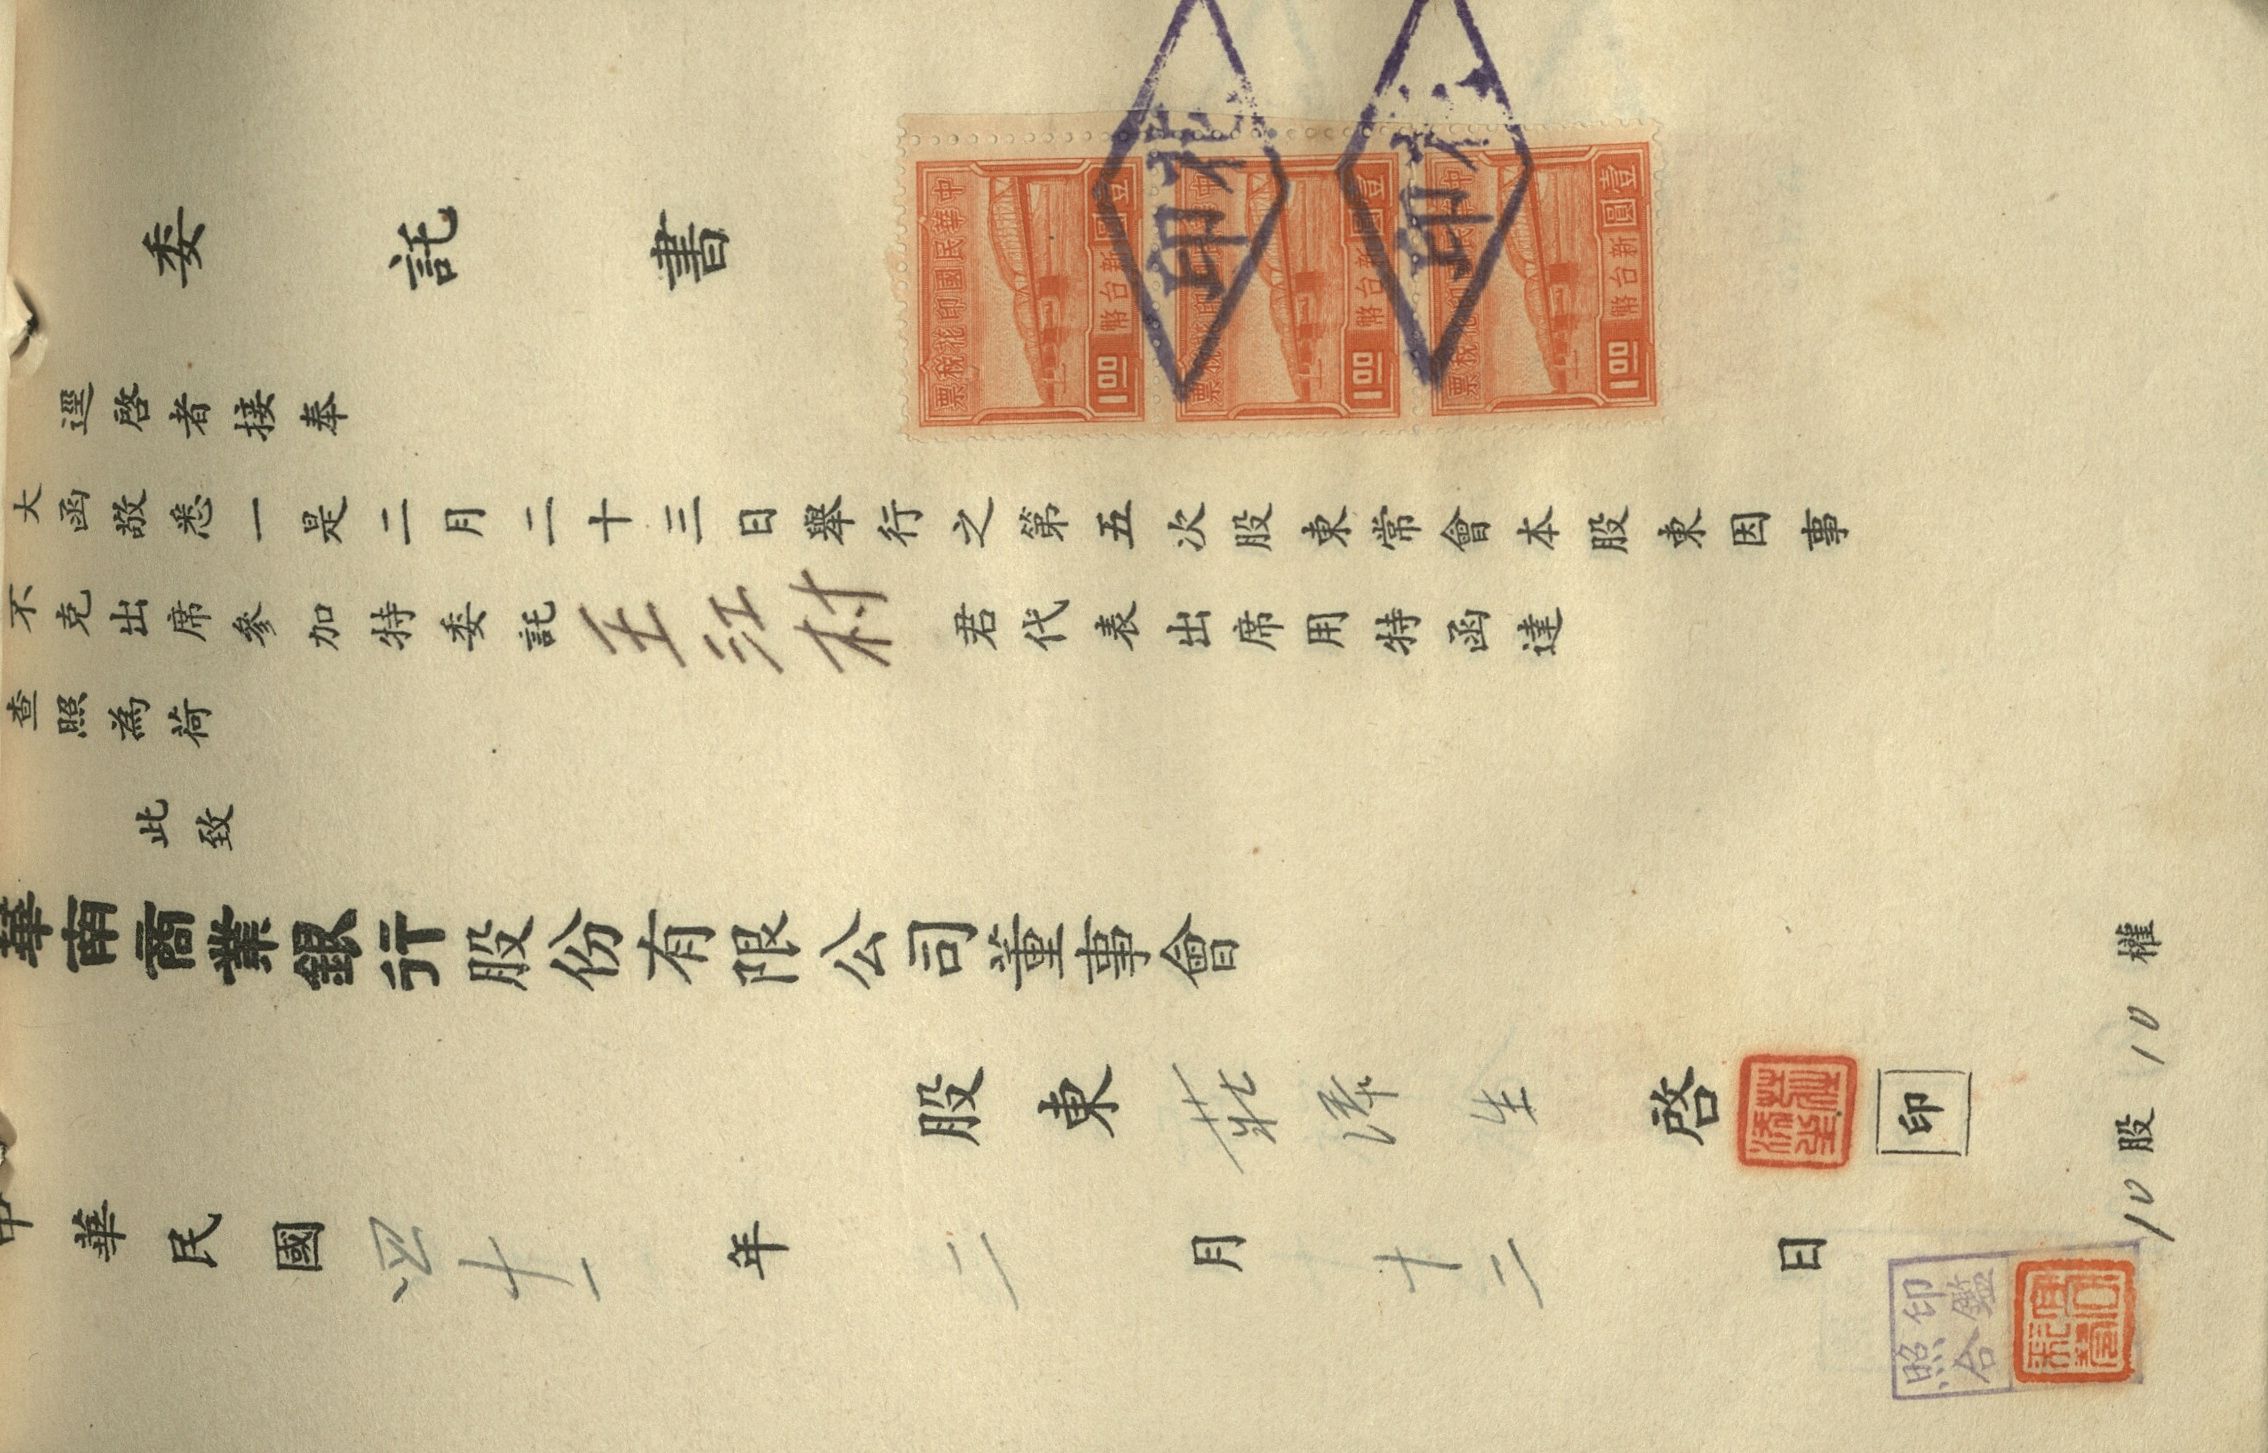 委託書
逕啓者接奉
大函敬悉一是二月二十三日舉行之第五次股東常會本股東因事
不克出席參加特委託王江村君代表出席用特函達
查照為荷
此致
華南商業銀行股份有限公司董事會
股東莊澤生啓
印
中華民國四十一年二月十二日
10股10權
印鑑
照合
中華民國印花稅票
壹圓
新台幣
1.00
中華民國印花稅票
壹圓
新台幣
1.00
中華民國印花稅票
壹圓
新台幣
1.00